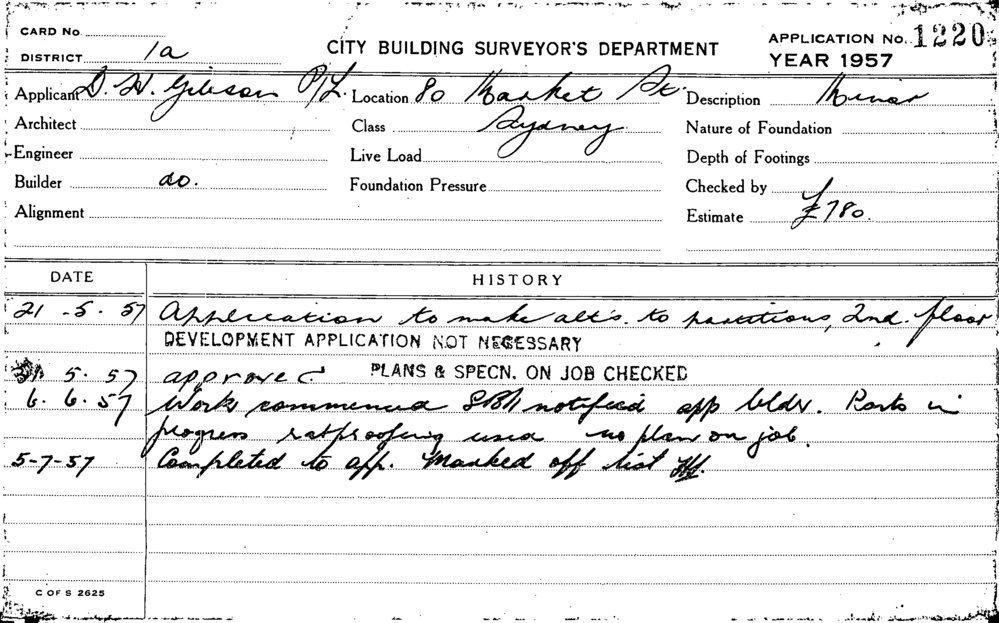 CARD No.
DISTRICT 1a
CITY BUILDING SURVEYOR'S DEPARTMENT
APPLICATION No. 1220
YEAR 1957
Applicant D. H. Gibson P/L.
Location 80 Market St.
Description Minor
Architect
Class Sydney
Nature of Foundation
Engineer
Live Load
Depth of Footings
Builder do.
Foundation Pressure
Checked by
Alignment
Estimate £780.
DATE HISTORY
21-5-57 Application to make alt's. to partitions, 2nd. floor
DEVELOPMENT APPLICATION NOT NECESSARY
5.57 approved PLANS & SPECN. ON JOB CHECKED
6.6.57 Work commenced notified app bldr. in
progress ratproofing used no plan on job.
5-7-57 Completed to app. Marked off list
C OF S 2625